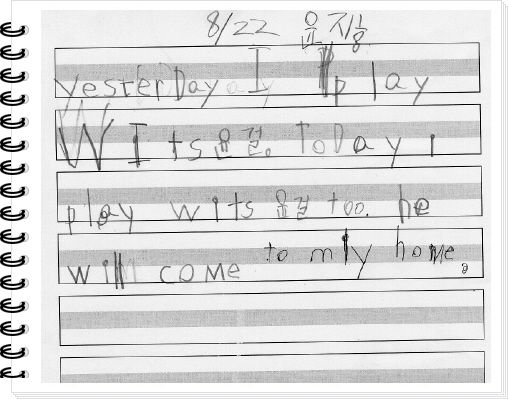 8/22
yesterDay I play
WIts ToDay I
play wits too. he
will come to my home.